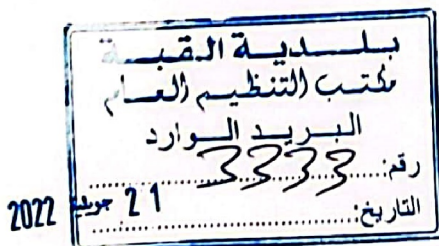 بلدية القبة
مكتب التنظيم العام
البريد الوارد
رقم: 3333
التاريخ: 21 جويلية 2022